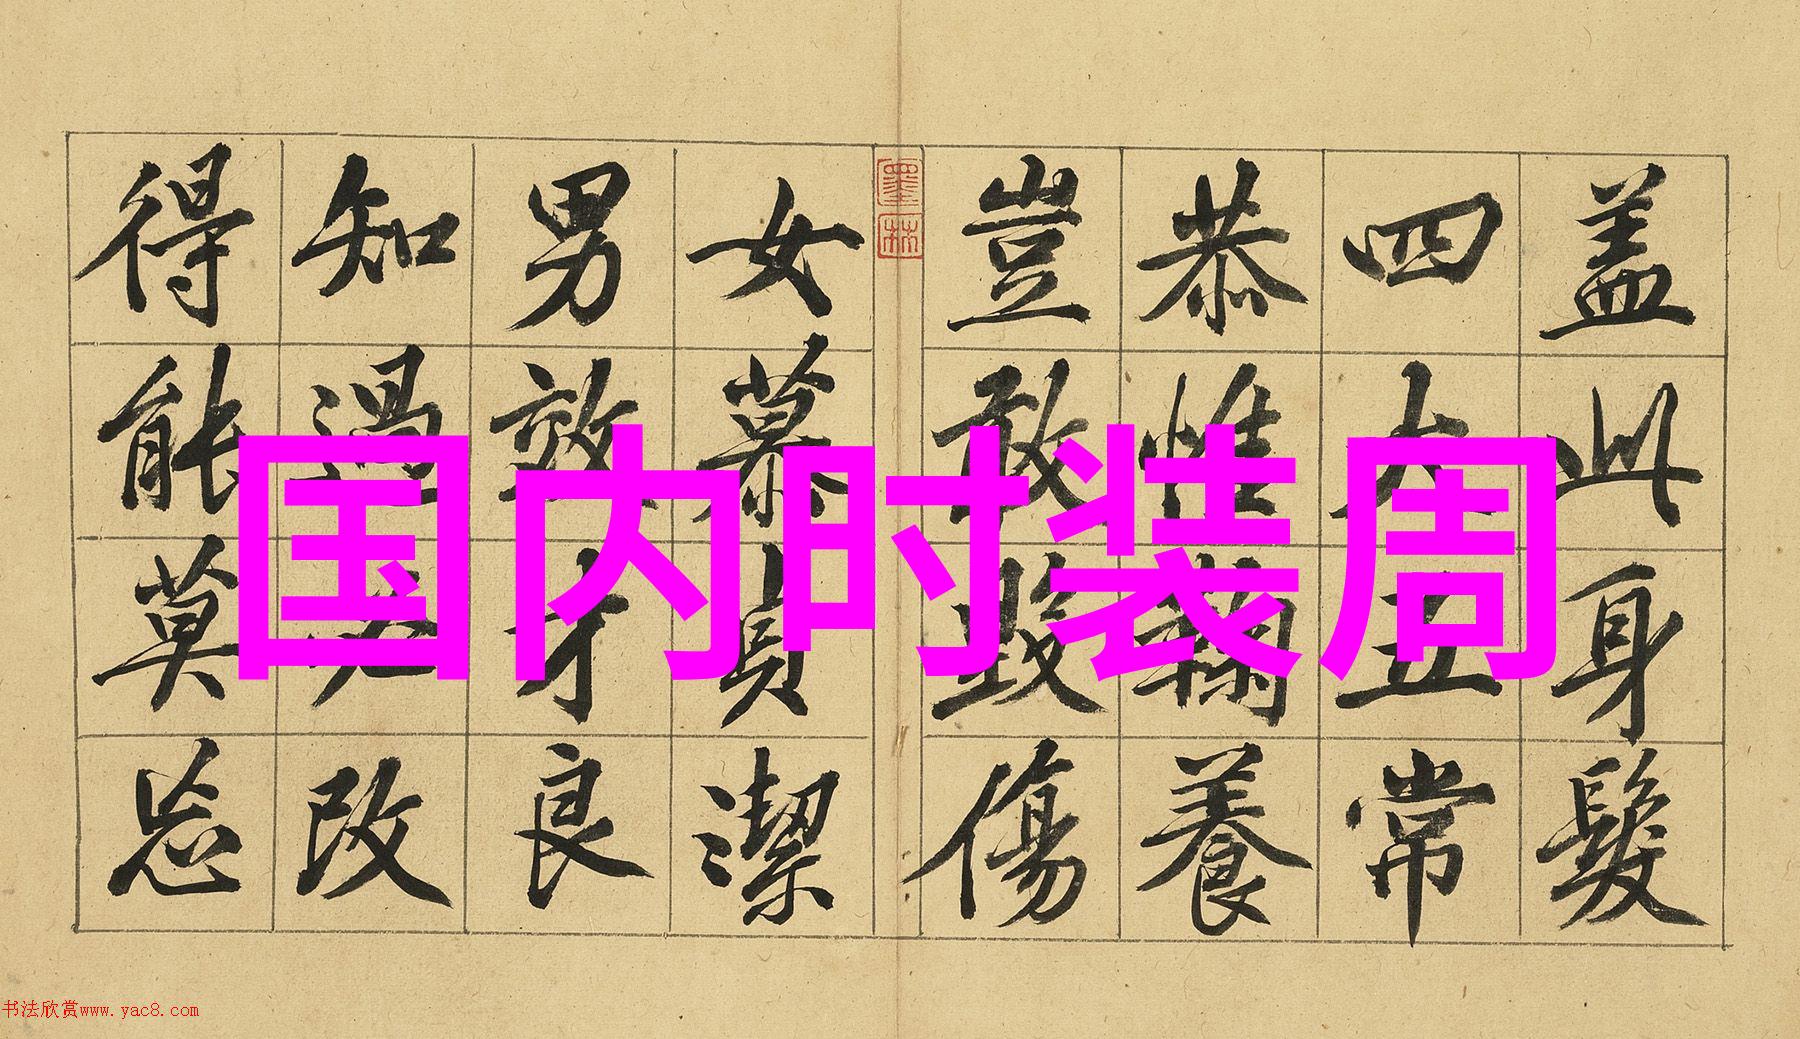 国内时装周
盖此身髮
四大五常
恭惟鞠養
豈敢毀傷
墨林
女慕貞潔
男效才良
知過必改
得能莫忘
书法欣赏www.yac8.com